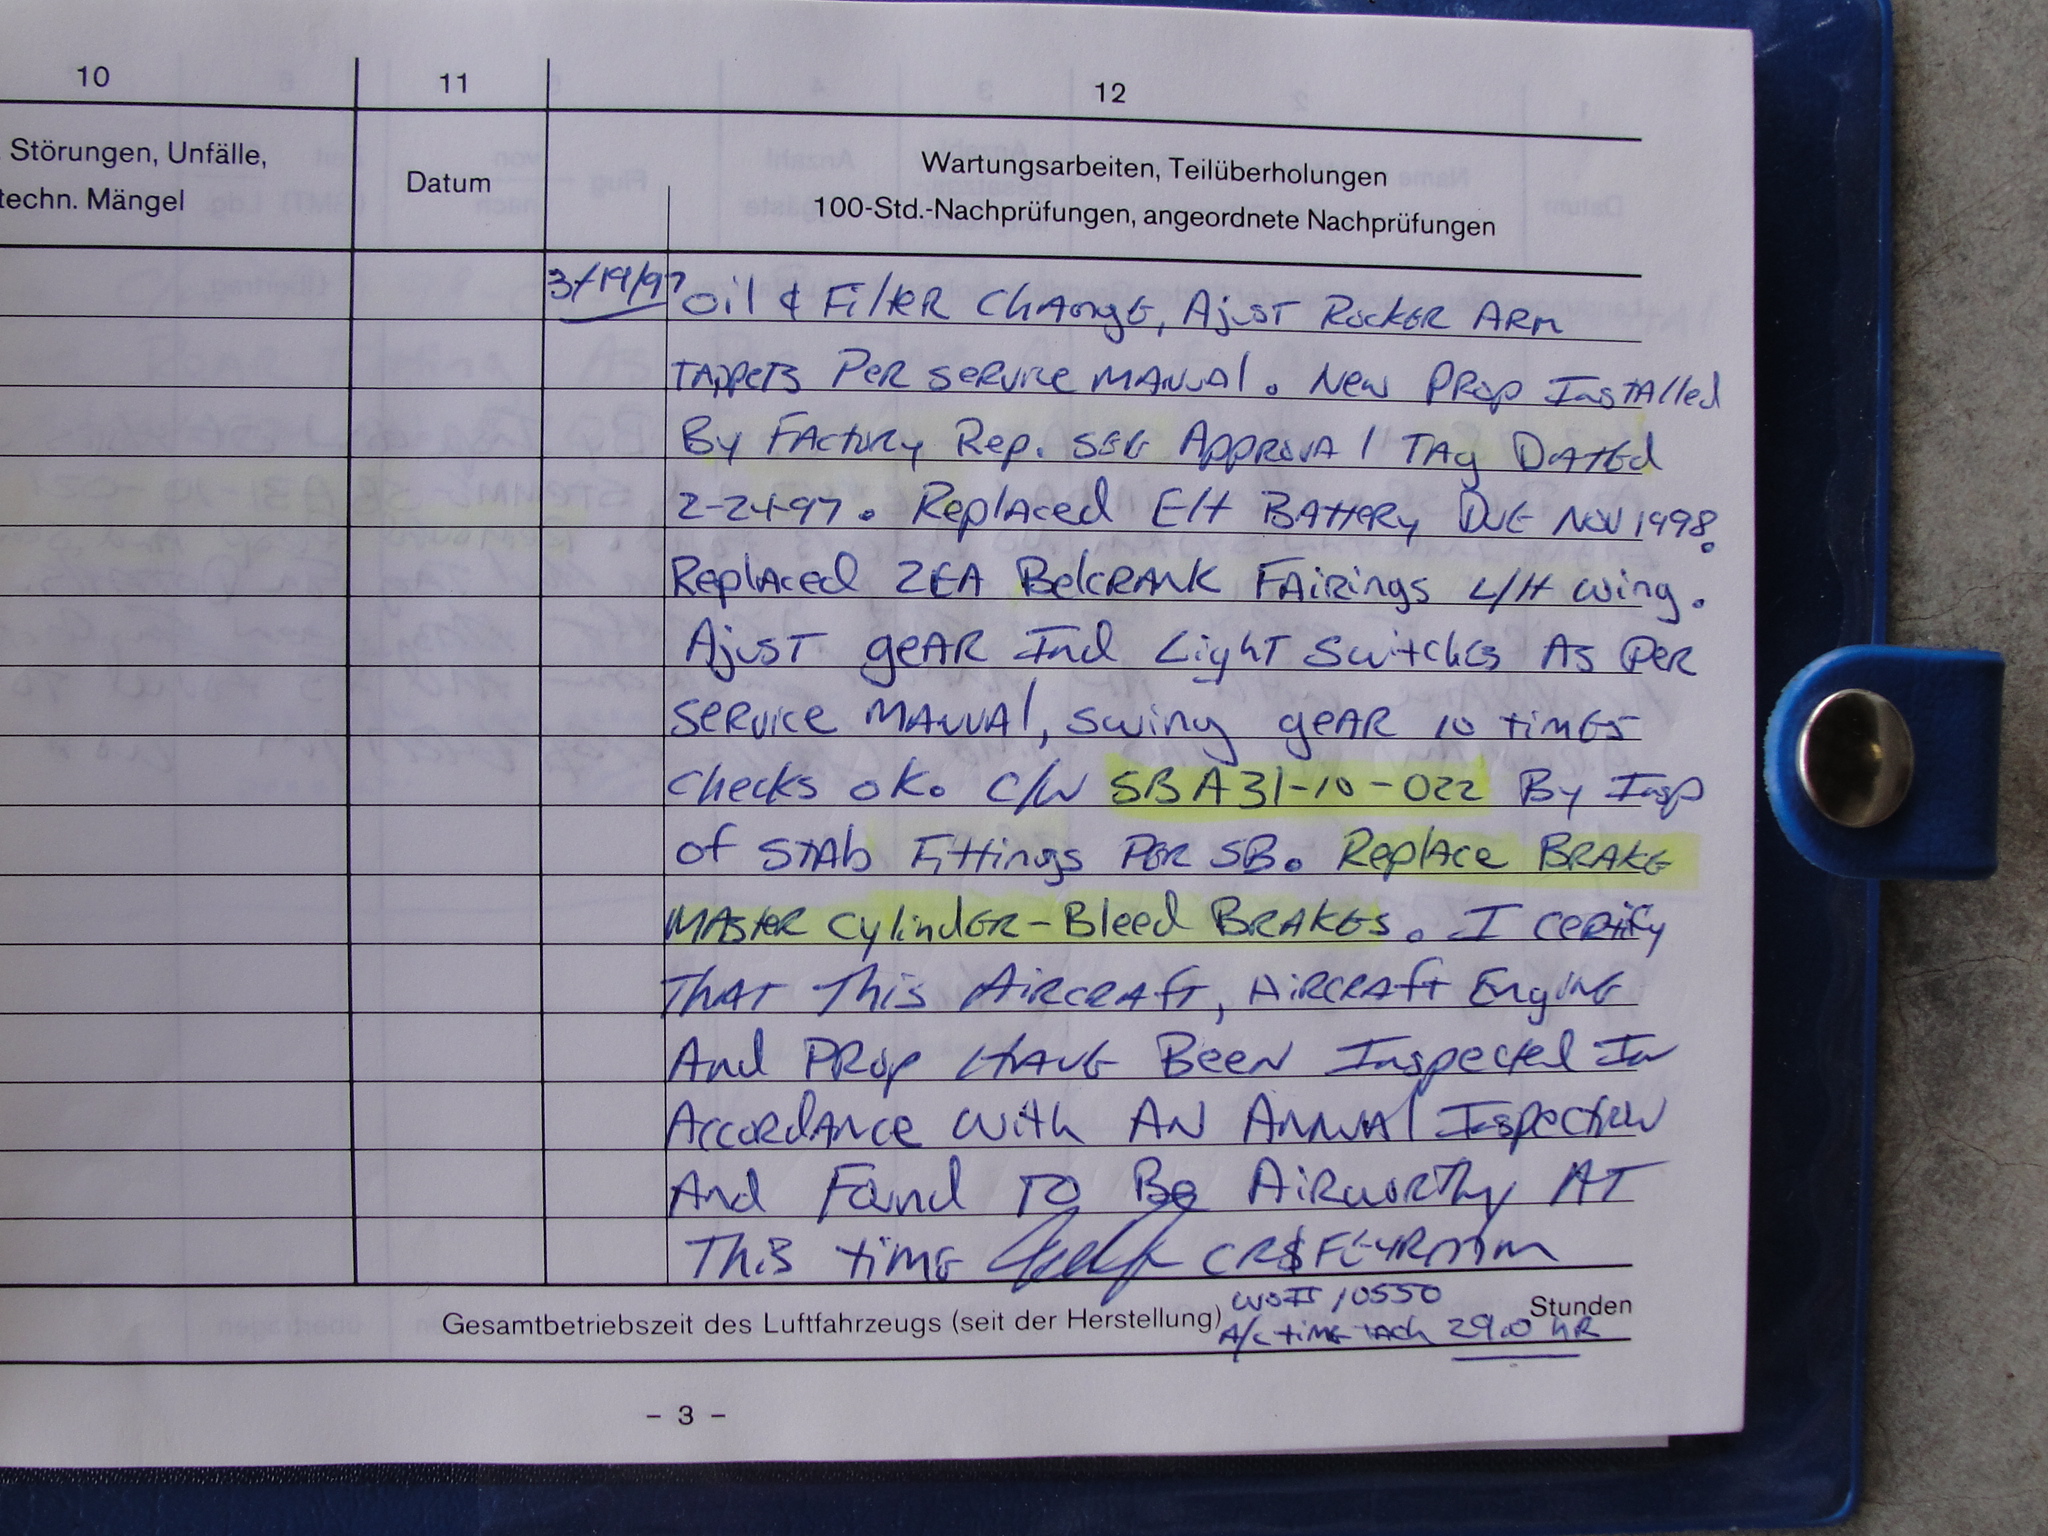 10 11 12
Störungen, Unfälle,
techn. Mängel
Datum
Wartungsarbeiten, Teilüberholungen
100-Std.-Nachprüfungen, angeordnete Nachprüfungen
3/19/97 Oil & Filter Change, Ajust Rocker Arm
tappets Per service manual. New Prop Installed
By Factory Rep. See Approval Tag Dated
2-24-97. Replaced Elt Battery Due Nov 1998.
Replaced 2EA Belcrank Fairings L/H wing.
Ajust gear Ind Light Switches As Per
Service Manual, swing gear 10 times
checks ok. C/W SB A31-10-022 By Insp
of Stab Fittings Per SB. Replace Brake
Master Cylinder-Bleed Brakes. I certify
That This Aircraft, Aircraft Engine
And Prop Have Been Inspected In
Accordance with An Annual Inspection
And Found To Be Airworthy At
This time
Gesamtbetriebszeit des Luftfahrzeugs (seit der Herstellung) Stunden
10550
A/C time tach 29.0 hr
- 3 -